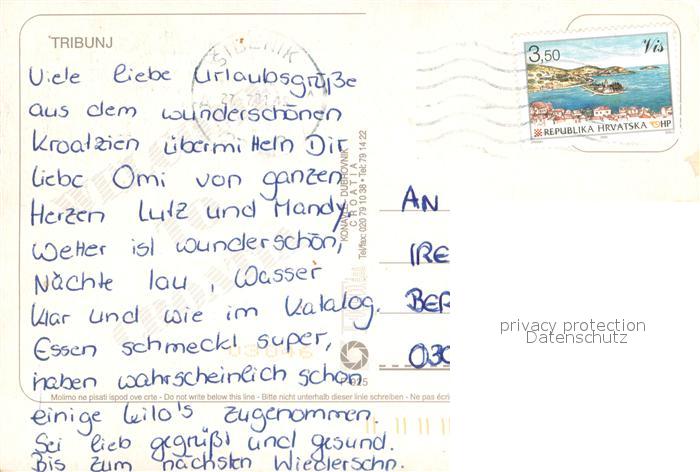 TRIBUNJ
ŠIBENIK
Vis
3,50
REPUBLIKA HRVATSKA HP
Viele liebe Urlaubsgrüße
aus dem wunderschönen
Kroatzien übermitteln Dir
liebe Omi von ganzen
Herzen Lutz und Mandy.
Wetter ist wunderschön,
Nächte lau, Wasser
klar und wie im Katalog.
Essen schmeckt super,
haben wahrscheinlich schon
einige Kilo's zugenommen.
Sei lieb gegrüßt und gesund.
Bis zum nächsten Wiedersehn.
KONAVLE, DUBROVNIK
CROATIA
Tel/fax: 020 79 10 38 • Tel: 79 14 22
AN
IRE
BER
030
privacy protection
Datenschutz
03046
Molimo ne pisati ispod ove crte - Do not write below this line - Bitte nicht unterhalb dieser linie schreiben - Ne pas écri